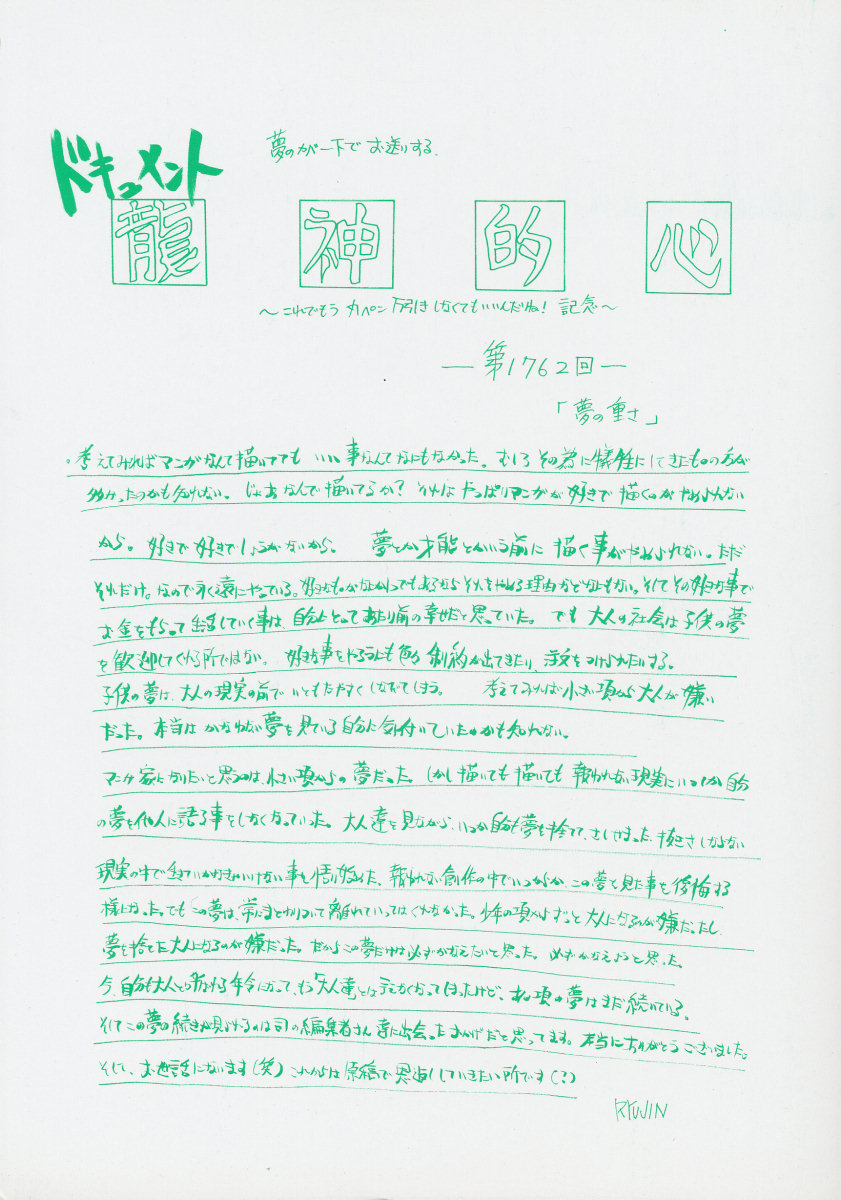 ドキュメント
夢のカバー下でお送りする。
龍神的心
〜これでもう丸ペン万引きしなくてもいいんだね！記念〜
―第1762回―
「夢の重さ」
。考えてみればマンガなんて描いてても いい事なんてなにもなかった。むしろその為に犠牲にしてきたものの方が
多かったのかも知れない。じゃあなんで描いてるか？それはやっぱりマンガが好きで描くのがやめられない
から。好きで好きでしょうがないから。 夢とか才能とかいう前に 描く事がやめられない。ただ
それだけ。なので永遠にやっている。好きなものがなにかしらでもあるならそれをやめる理由などなにもない。そしてその好きな事で
お金をもらって生活していく事は、自分にとってあたり前の幸せだと思っていた。でも 大人の社会は子供の夢
を歓迎してくれる所ではない。好きな事をやるにも色々制約が出てきたり、注文をつけられたりする。
子供の夢は、大人の現実の前でいともたやすくしなびてしまう。 考えてみれば小さい頃から大人が嫌い
だった。本当はかなわない夢を見ている自分に気付いていたのかも知れない。
マンガ家になりたいと思うのは、小さい頃からの夢だった。しかし描いても描いても報われない現実にいつしか自分
の夢を他人に語る事をしなくなっていった。大人達を見ながら、いつか自分も夢を捨て、
現実の中で生きていかなきゃいけない事も悟り始めた。報われない創作の中でいつからか、この夢を見た事を後悔する
様になった。でもこの夢は、常にまとわりついて離れていってはくれなかった。少年の頃からずっと大人になるのが嫌だったし、
夢を捨てた大人になるのが嫌だった。だからこの夢だけは必ずかなえたいと思った。必ずかなえようと思った。
今、自分も大人と呼ばれる年令になって、もう「大人達」とは言えなくなってしまったけど、あの頃の夢はまだ続いている。
そしてこの夢の続きが見られるのは司の編集者さん達に出会ったおかげだと思ってます。本当にありがとうございました。
そして、お世話になります(笑) これからは原稿で恩返ししていきたい所です(？)
RYUJIN